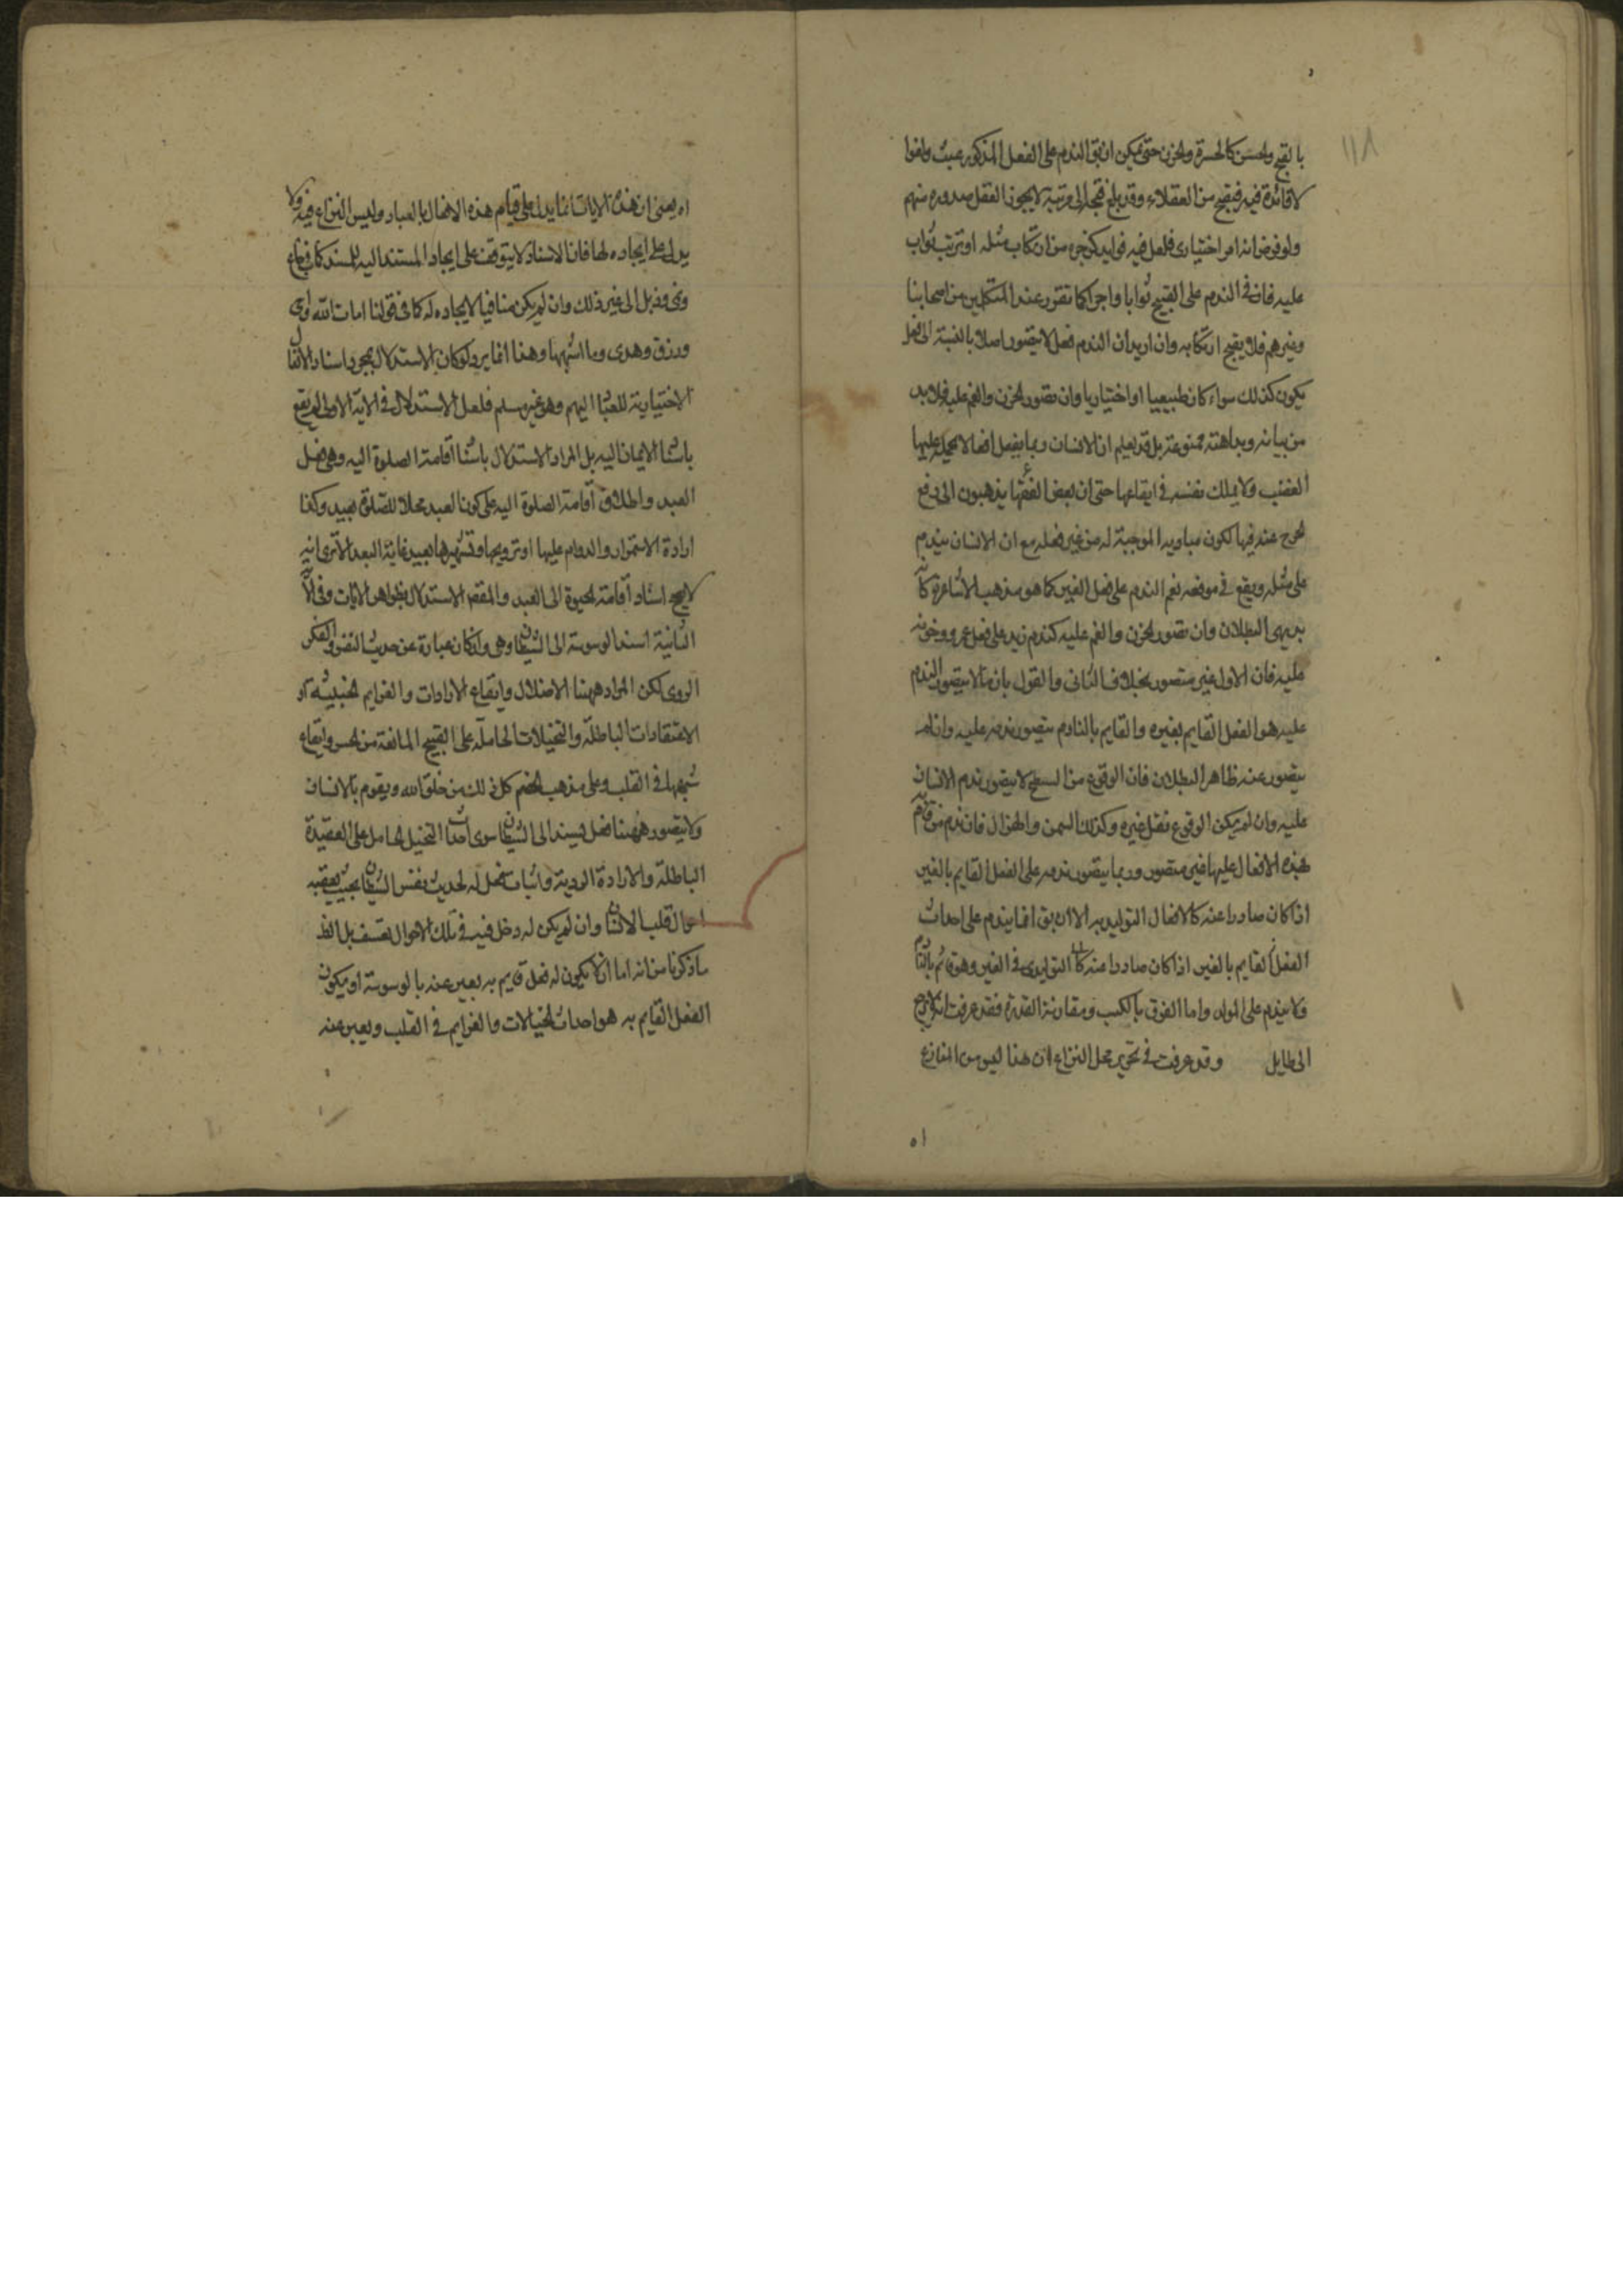 ١١٨
بالقبح والحسن كالحسرة والحزن حتى يمكن ان يق الندم على الفعل المذكور عبث ولغوا
لا فائدة فيه فيقبح من العقلاء وقد بلغ قبحه الى مرتبة لا يجوز العقل صدوره منهم
ولو فرض انه امر اختيارى فلعل فيه فوايد كزجره من ارتكاب مثله او ترتب ثواب
عليه فان فى الندم على القبيح ثوابا واجرا كما تقرر عند المتكلمين من اصحابنا
وغيرهم فلا يقبح ارتكابه وان اريد ان الندم فعل لا يتصور اصلا بالنسبة الى فعل
يكون كذلك سواء كان طبيعيا او اختياريا وان تصور الحزن والغم عليه فلا بد
من بيانه وبداهته ممنوعة بل قد يعلم ان الانسان ربما يفعل افعالا يحمله عليها
الغضب ولا يملك نفسه فى ايقاعها حتى ان بعض الفقها يذهبون الى رفع
الحرج عنه فيها لكون مباديه الموجبة له من غير فعله مع ان الانسان يندم
على مثله ويقع فى موقعه نعم الندم على فعل الغير كما هو مذهب الاشاعرة كانه
بديهى البطلان وان تصور الحزن والغم عليه كندم زيد على فعل عمرو وحزنه
عليه فان الاول غير متصور بخلاف الثانى والقول بان ما لا يتصور الندم
عليه هو الفعل القايم بغيره والقايم بالنادم يتصور ندمه عليه وان لم
يتصور عنه ظاهر البطلان فان الوقوع من السطح لا يتصور ندم الانسان
عليه وان لم يكن الوقوع فعل غيره وكذلك السمن والهزال فان ندم من قام به
هذه الافعال عليها غير متصور وربما يتصور ندمه على الفعل القايم بالغير
اذا كان صادرا عنه كالافعال التوليدية الا ان يق انما يندم على احداث
الفعل القايم بالغير اذا كان صادرا عنه التوليدى فى الغير وهو قائم بالنادم
ولا يندم على المولد واما الفرق بالكسب ومقارنة القدرة فقد عرفت انه لا يرجع
الى طايل وقد عرفت فى تحرير محل النزاع ان هذا ليس من المنازع
اه يعنى ان هذه الايات انما يدل على قيام هذه الافعال بالعباد وليس النزاع فيه ولا
يدل على ايجاده لها فان الاسناد لا يتوقف على ايجاد المستند اليه للمسند كما فى
الى غير ذلك وان لم يكن منافيا لايجاده له كما فى قولنا امات الله
ورزق وهدى وما اشبهها وهذا انما يرد لو كان الاستدلال بمجرد اسناد الافعال
الاختيارية للعباد اليهم وهو غير مسلم فلعل الاستدلال فى الاية الاولى لم يقع
باسناد الايمان اليه بل المراد الاستدلال باسناد اقامة الصلوة اليه وهى فعل
العبد واطلاق اقامة الصلوة اليه على كون العبد محلا للصلوة بعيد وكذا
ارادة الاستمرار والدوام عليها او ترويجها وتشهيرها بعيد غاية البعد الا ترى انه
لا يصح اسناد اقامة الحيوة الى العبد والمقصد الاستدلال بظواهر الايات وفى الاية
الثانية اسند الوسوسة الى الشيطان وهى وان كان عبارة عن حديث النفس والفكر
الردى لكن المراد ههنا الاضلال وايقاع الارادات والعزايم الخبيثة او
الاعتقادات الباطلة والتخيلات الحاملة على القبيح المانعة من الحسن وايقاع
شبهها فى القلب وعلى مذهب الخصم كل ذلك من خلق الله ويقوم بالانسان
ولا يتصور ههنا فعل يسند الى الشيطان سوى احداث التخيل الحامل على العقيدة
الباطلة والارادة الردية واثبات فعل له لحديث نفس الشيطان بحيث يعقبه
احوال قلب الانسان وان لم يكن له دخل فيه فى تلك الاحوال تعسف بل الظ
ما ذكرنا من انه اما ان لا يكون له فعل قايم به يعبر عنه بالوسوسة او يكون
الفعل القايم به هو احداث الخيالات والعزايم فى القلب ويعبر عنه